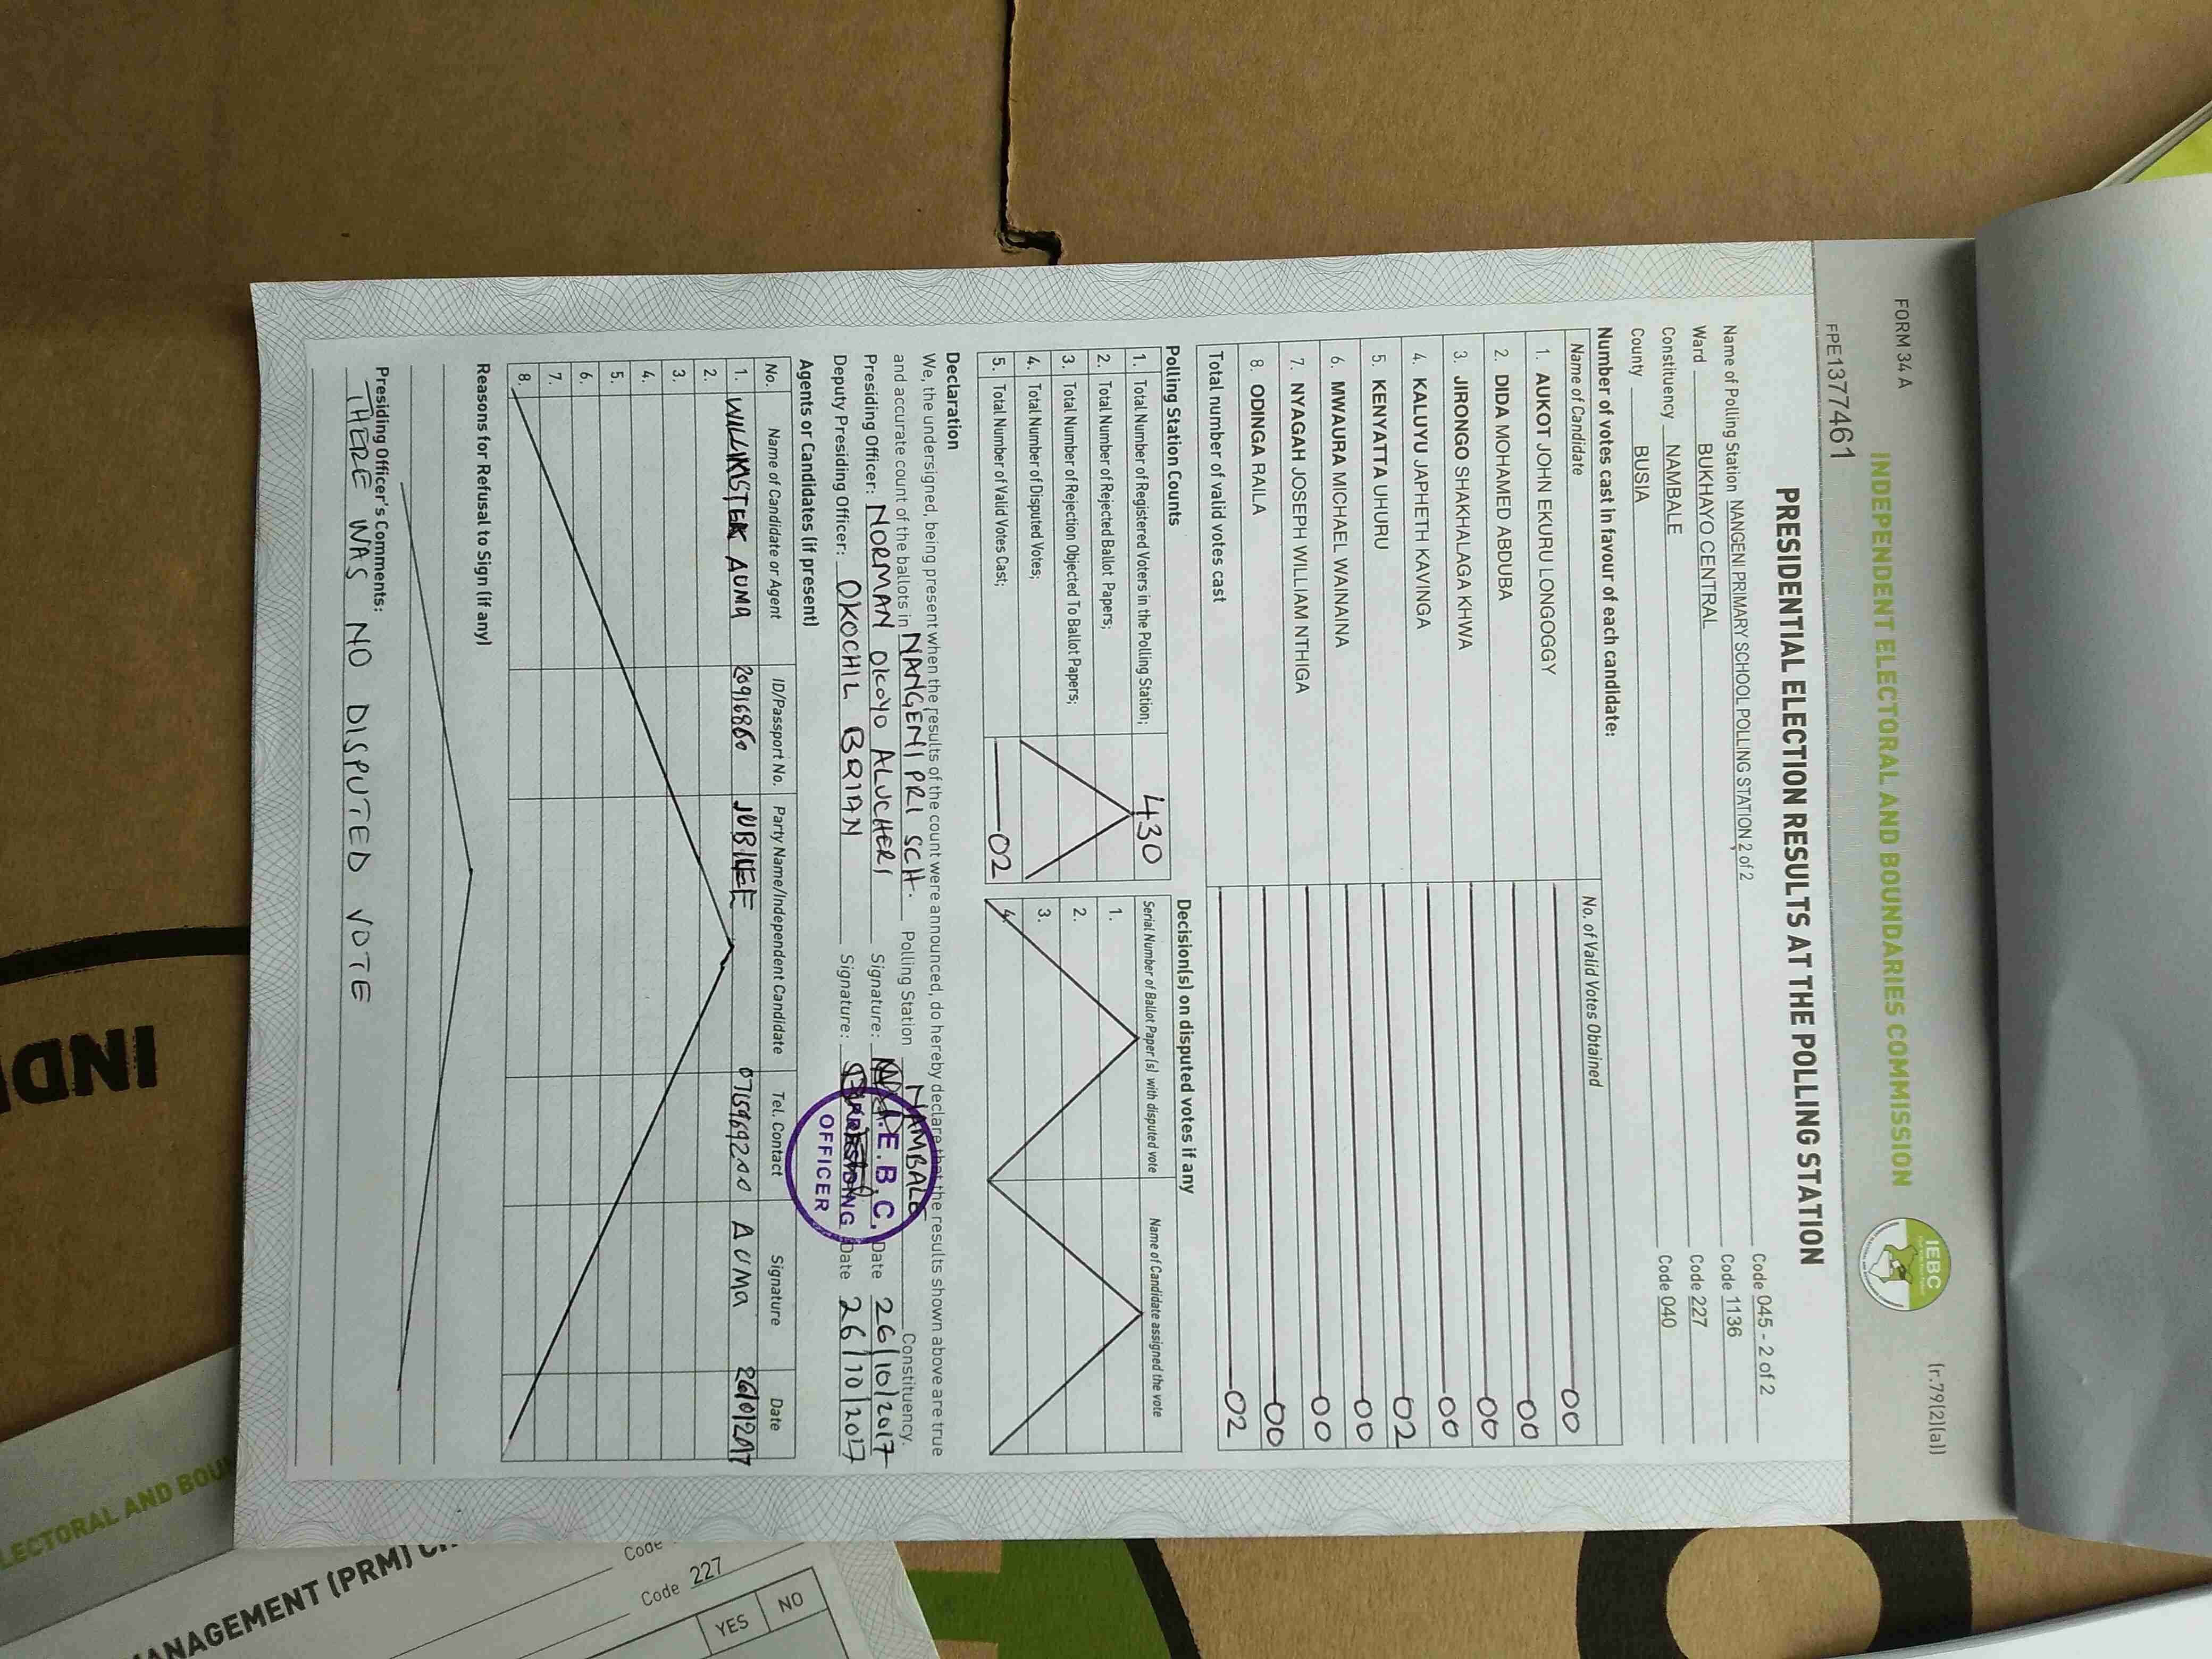 FORM 34 A
(r.79(2)(a))
INDEPENDENT ELECTORAL AND BOUNDARIES COMMISSION
IEBC
FPE1377461
PRESIDENTIAL ELECTION RESULTS AT THE POLLING STATION
Name of Polling Station NANGENI PRIMARY SCHOOL POLLING STATION 2 of 2 Code 045 - 2 of 2
Ward BUKHAYO CENTRAL Code 1136
Constituency NAMBALE Code 227
County BUSIA Code 040
Number of votes cast in favour of each candidate:
Name of Candidate No. of Valid Votes Obtained
1. AUKOT JOHN EKURU LONGOGGY 00
2. DIDA MOHAMED ABDUBA 00
3. JIRONGO SHAKHALAGA KHWA 00
4. KALUYU JAPHETH KAVINGA 00
5. KENYATTA UHURU 02
6. MWAURA MICHAEL WAINAINA 00
7. NYAGAH JOSEPH WILLIAM NTHIGA 00
8. ODINGA RAILA 00
Total number of valid votes cast 02
Polling Station Counts
1. Total Number of Registered Voters in the Polling Station; 430
2. Total Number of Rejected Ballot Papers;
3. Total Number of Rejection Objected To Ballot Papers;
4. Total Number of Disputed Votes;
5. Total Number of Valid Votes Cast; 02
Decision(s) on disputed votes if any
Serial Number of Ballot Paper (s) with disputed vote Name of Candidate assigned the vote
1.
2.
3.
4.
Declaration
We, the undersigned, being present when the results of the count were announced, do hereby declare that the results shown above are true
and accurate count of the ballots in NANGENI PRI SCH. Polling Station NAMBALE Constituency.
Presiding Officer: NORMAN OKOYO ALUCHERI Signature: Date 26/10/2017
Deputy Presiding Officer: OKOCHIL BRIAN Signature: Date 26/10/2017
I.E.B.C.
PRESIDING
OFFICER
Agents or Candidates (if present)
No. Name of Candidate or Agent ID/Passport No. Party Name/Independent Candidate Tel. Contact Signature Date
1. AUMA 20916860 JUBILEE AUMA
2.
3.
4.
5.
6.
7.
8.
Reasons for Refusal to Sign (if any)
Presiding Officer's Comments:
THERE WAS NO DISPUTED VOTE
IND
LECTORAL AND BOU
MANAGEMENT (PRM)
Code
Code 227
YES NO